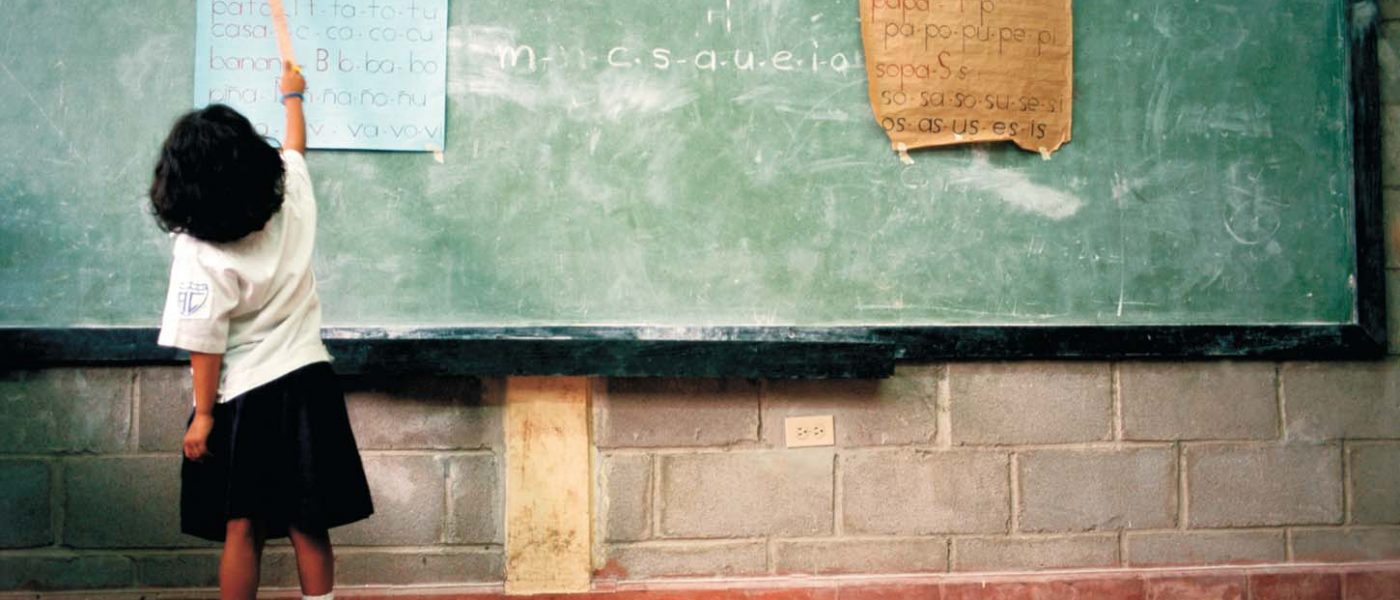 pato t·ta·to·tu
casa c·ca·co·cu
banan B b·ba·bo
piña ñ·ña·ño·ñu
v· va·vo·v
m- c·s-a·u·e·i·o
papa
pa·po·pu·pe·pi
sopa·S s
so·sa·so·su·se·si
os·as·us·es·is